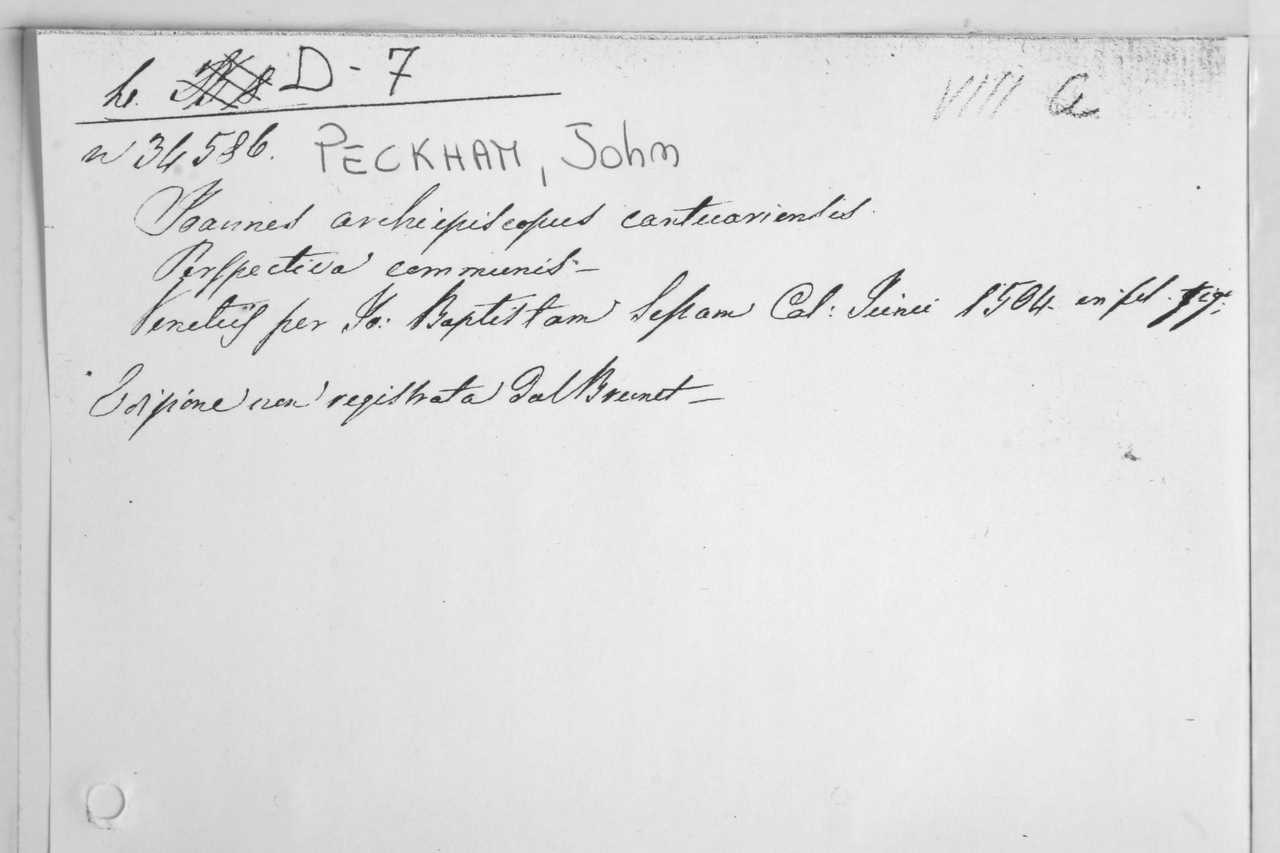 h. D - 7
VIII a
n 34586. PECKHAM, John
Joannes archiepiscopus cantuariensis.
Perspectiva communis -
Venetijs per Jo: Baptistam Sessam Cal: Junii 1504. in fol. fig:
Edizione non registrata dal Brunet -